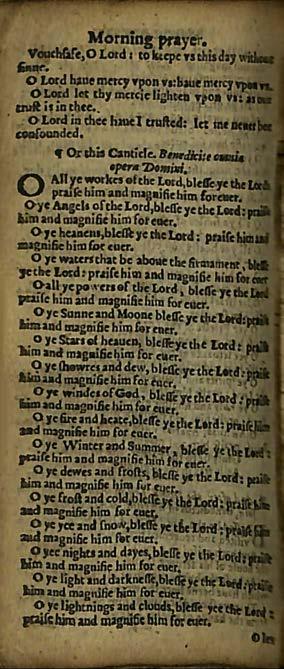 Morning prayer.
Vouchsafe, O Lord: to keepe vs this day without
sinne.
O Lord haue mercy vpon vs: haue mercy vpon vs.
O Lord let thy mercie lighten vpon vs: as our
trust is in thee.
O Lord in thee haue I trusted: let me neuer bee
confounded.
¶ Or this Canticle. Benedicite omnia
opera Domini.
O All ye workes of the Lord, blesse ye the Lord:
praise him and magnifie him for euer.
O ye Angels of the Lord, blesse ye the Lord: praise
him and magnifie him for euer.
O ye heauens, blesse ye the Lord: praise him and
magnifie him for euer.
O ye waters that be aboue the firmament, blesse
ye the Lord: praise him and magnifie him for euer
O all ye powers of the Lord, blesse ye the Lord
praise him and magnifie him for euer.
O ye Sunne and Moone blesse ye the Lord: praise
him and magnifie him for euer.
O ye Stars of heauen, blesse ye the Lord: praise
him and magnifie him for euer.
O ye showres and dew, blesse ye the Lord: praise
him and magnifie him for euer.
O ye windes of God, blesse ye the Lord: praise
him and magnifie him for euer.
O ye fire and heate, blesse ye the Lord: praise him
and magnifie him for euer.
O ye Winter and Summer, blesse ye the Lord:
praise him and magnifie him for euer.
O ye dewes and frosts, blesse ye the Lord: praise
him and magnifie him for euer.
O ye frost and cold, blesse ye the Lord: praise him
and magnifie him for euer.
O ye yce and snow, blesse ye the Lord: praise him
and magnifie him for euer.
O yee nights and dayes, blesse ye the Lord: praise
him and magnifie him for euer.
O ye light and darknesse, blesse ye the Lord: praise
him and magnifie him for euer.
O ye lightnings and clouds, blesse yee the Lord:
praise him and magnifie him for euer.
O let